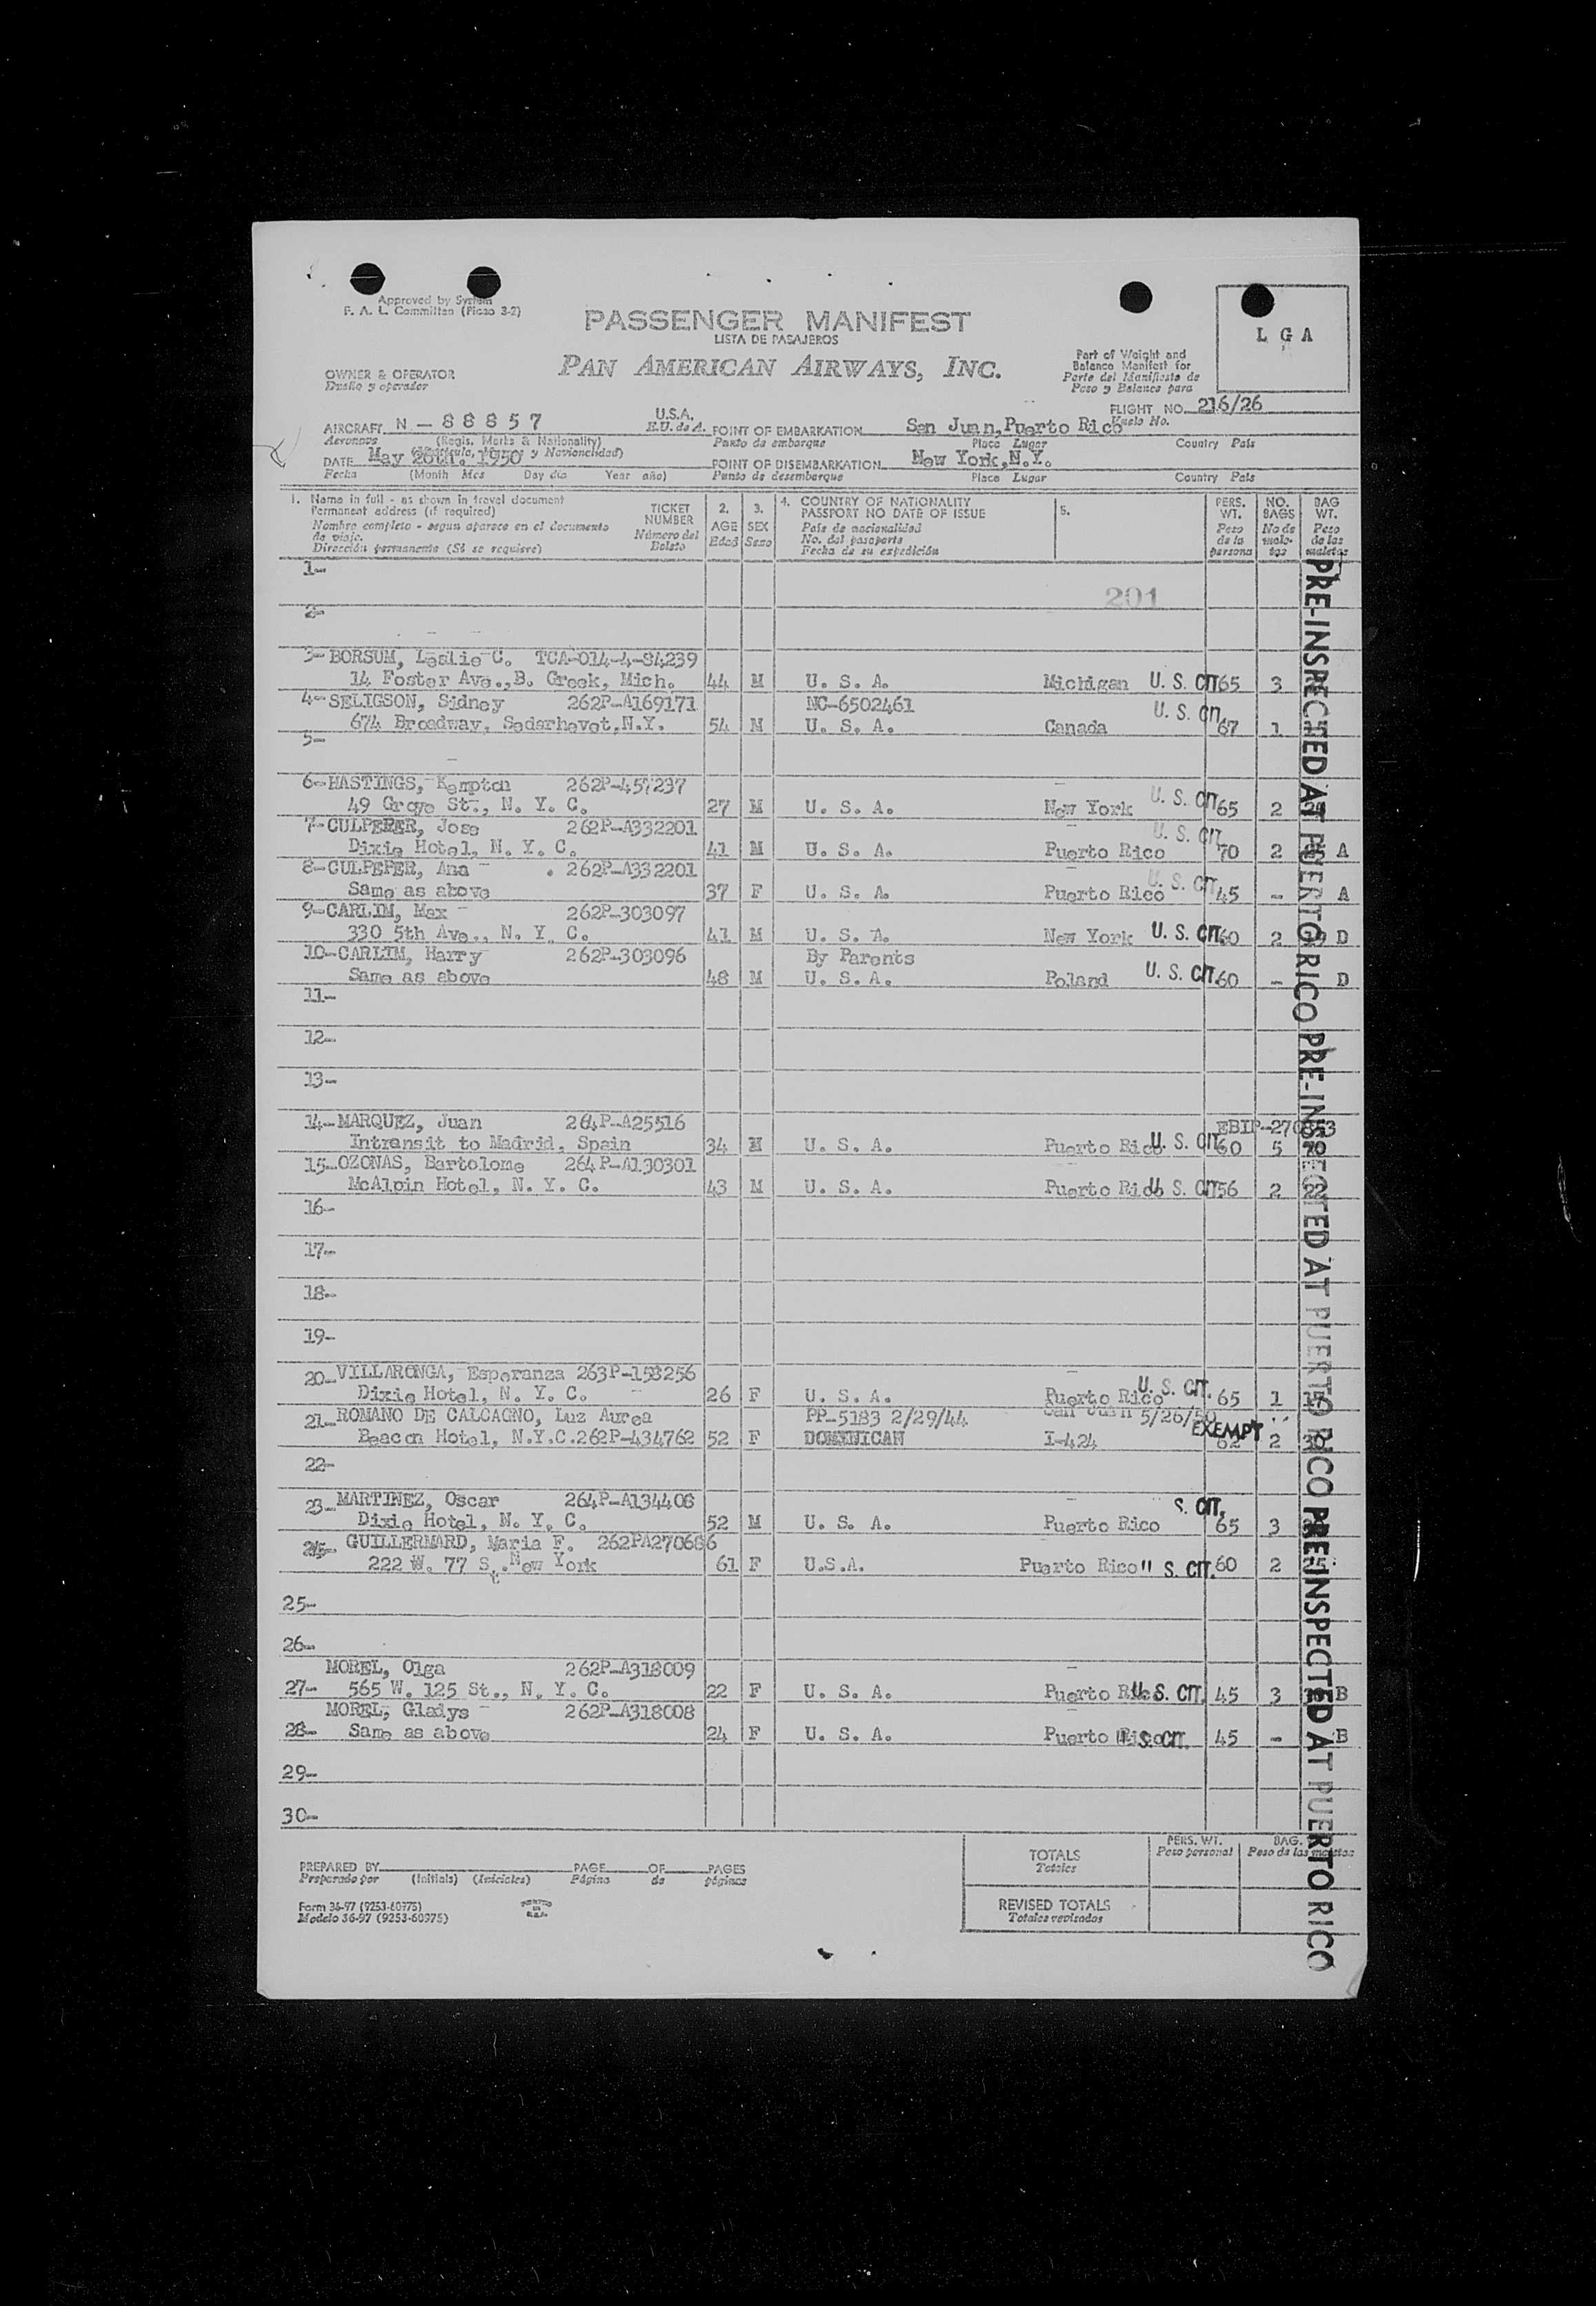 Approved by System
F. A. L. Committee (Picao 3-2)
PASSENGER MANIFEST
LISTA DE PASAJEROS
PAN AMERICAN AIRWAYS, INC.
L G A
Part of Weight and
Balance Manifest for
Parte del Manifiesto de
Peso y Balance para
OWNER & OPERATOR
Dueño y operador
FLIGHT NO. 216/26
Vuelo No.
AIRCRAFT N - 88857 U.S.A.
E.U. de A.
Aeronave (Regis. Marks & Nationality)
POINT OF EMBARKATION San Juan, Puerto Rico
Punto de embarque Place Lugar Country País
DATE May 1950
Fecha (Month Mes Day día Year año)
POINT OF DISEMBARKATION New York, N.Y.
Punto de desembarque Place Lugar Country País
1. Name in full - as shown in travel document
Permanent address (if required)
Nombre completo - segun aparece en el documento
de viaje.
Dirección permanente (Si se requiere)
TICKET
NUMBER
Número del
Boleto
2.
AGE
Edad
3.
SEX
Sexo
4. COUNTRY OF NATIONALITY
PASSPORT NO DATE OF ISSUE
País de nacionalidad
No. del pasaporte
Fecha de su expedición
5.
PERS.
WT.
Peso
de la
persona
NO.
BAGS
No de
male-
tas
BAG
WT.
Peso
de las
maletas
1-
201
2-
3- BORSUM, Leslie C. TCA-014-4-84239
14 Foster Ave., B. Creek, Mich. 44 M U. S. A. Michigan U. S. CIT 65 3
4- SELIGSON, Sidney 262P-A169171 NC-6502461
674 Broadway, Sedarhevet, N.Y. 54 M U. S. A. Canada U. S. CIT 67 1
5-
6- HASTINGS, Kempton 262P-457237
49 Grove St., N. Y. C. 27 M U. S. A. New York U. S. CIT 65 2
7- CULPEPER, Jose 262P-A332201
Dixie Hotel, N. Y. C. 41 M U. S. A. Puerto Rico U. S. CIT 70 2 A
8- CULPEPER, Ana 262P-A332201
Same as above 37 F U. S. A. Puerto Rico U. S. CIT 45 - A
9- CARLIM, Max 262P-303097
330 5th Ave., N. Y. C. 41 M U. S. A. New York U. S. CIT. 60 2 D
10- CARLIM, Harry 262P-303096 By Parents
Same as above 48 M U. S. A. Poland U. S. CIT. 60 - D
11-
12-
13-
14- MARQUEZ, Juan 264P-A25516
Intransit to Madrid, Spain 34 M U. S. A. Puerto Rico U. S. CIT 60 5
15- OZONAS, Bartolome 264P-A130301
McAlpin Hotel, N. Y. C. 43 M U. S. A. Puerto Rico U. S. CIT 56 2
16-
17-
18-
19-
20- VILLARONGA, Esperanza 263P-158256
Dixie Hotel, N. Y. C. 26 F U. S. A. Puerto Rico U. S. CIT. 65 1
21- ROMANO DE CALCAGNO, Luz Aurea PP-5183 2/29/44 San Juan 5/26/50
Beacon Hotel, N.Y.C. 262P-434762 52 F DOMINICAN I-424 EXEMPT 62 2
22-
23- MARTINEZ, Oscar 264P-A134408
Dixie Hotel, N. Y. C. 52 M U. S. A. Puerto Rico S. CIT. 65 3
GUILLERMARD, Maria F. 262PA270686
222 W. 77 St. New York 61 F U.S.A. Puerto Rico S. CIT. 60 2
25-
26-
MOREL, Olga 262P-A318009
27- 565 W. 125 St., N. Y. C. 22 F U. S. A. Puerto Rico U. S. CIT. 45 3 B
MOREL, Gladys 262P-A318008
28- Same as above 24 F U. S. A. Puerto Rico U. S. CIT. 45 - B
29-
30-
PRE-INSPECTED AT PUERTO RICO PRE-INSPECTED AT PUERTO RICO PRE-INSPECTED AT PUERTO RICO
PREPARED BY PAGE OF PAGES
Preparado por (Initials) (Iniciales) Página de páginas
TOTALS
Totales
PERS. WT.
Peso personal
BAG.
Peso de las maletas
REVISED TOTALS
Totales revisados
Form 36-97 (9253-60975)
Modelo 36-97 (9253-60975)
PRINTED
IN
U.S.A.